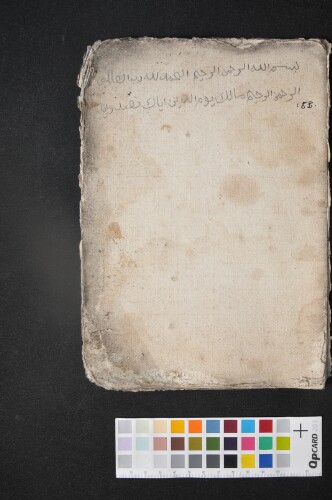 بسم الله الرحمن الرحيم الحمد لله رب العالمين
الرحمن الرحيم مالك يوم الدين اياك نعبد وا
158.
QPCARD 201